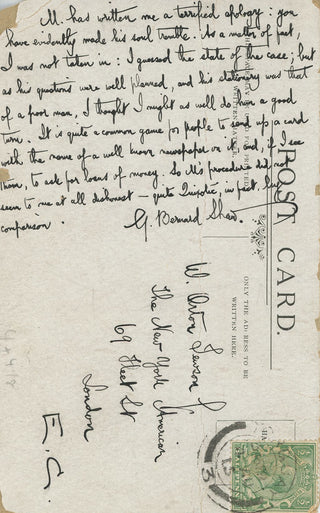 M. has written me a terrified apology: you
have evidently made his soul tremble. As a matter of fact,
I was not taken in: I guessed the state of the case; but
as his questions were well planned, and his stationery was that
of a poor man, I thought I might as well do him a good
turn. It is quite a common game for people to send up a card
with the name of a well known newspaper on it, and, if I see
them, to ask for loans of money. So M's procedure did not
seem to me at all dishonest — quite Quixotic, in fact, by
comparison.
G. Bernard Shaw.
POST CARD.
ONLY THE ADDRESS TO BE
WRITTEN HERE.
W. Orton Tewson
The New York American
69 Fleet St
London
E.C.